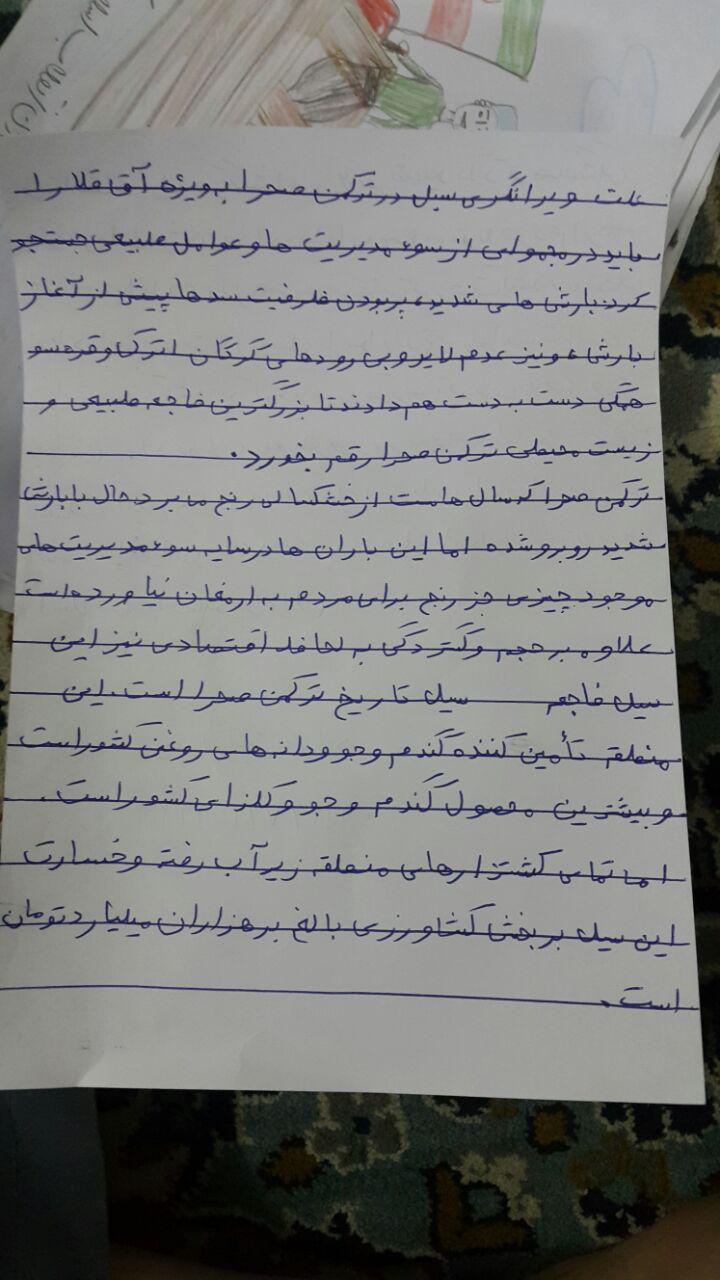 علت ویرانگری سیل در ترکمن صحرا بویژه آق قلا را
باید در مجموعه‌ای از سوء مدیریت ها و عوامل طبیعی جستجو
کرد. بارش های شدید، پر بودن ظرفیت سدها پیش از آغاز
بارش، و نیز عدم لایروبی رودهای گرگان اترک و قره سو
همگی دست به دست هم دادند تا بزرگترین فاجعه طبیعی و
زیست محیطی ترکمن صحرا رقم بخورد.
ترکمن صحرا که سال هاست از خشکسالی رنج می برد حال با بارش
شدید روبرو شده اما این باران ها در سایه سوء مدیریت های
موجود چیزی جز رنج برای مردم به ارمغان نیاورده است
علاوه بر حجم و گستردگی به لحاظ اقتصادی نیز این
سیل فاجعه سیل تاریخ ترکمن صحرا است. این
منطقه تأمین کننده گندم و جو و دانه های روغنی کشور است
و بیشترین محصول گندم و جو و کلزای کشور است.
اما تمامی کشتزارهای منطقه زیر آب رفته و خسارت
این سیل بر بخش کشاورزی بالغ بر هزاران میلیارد تومان
است.